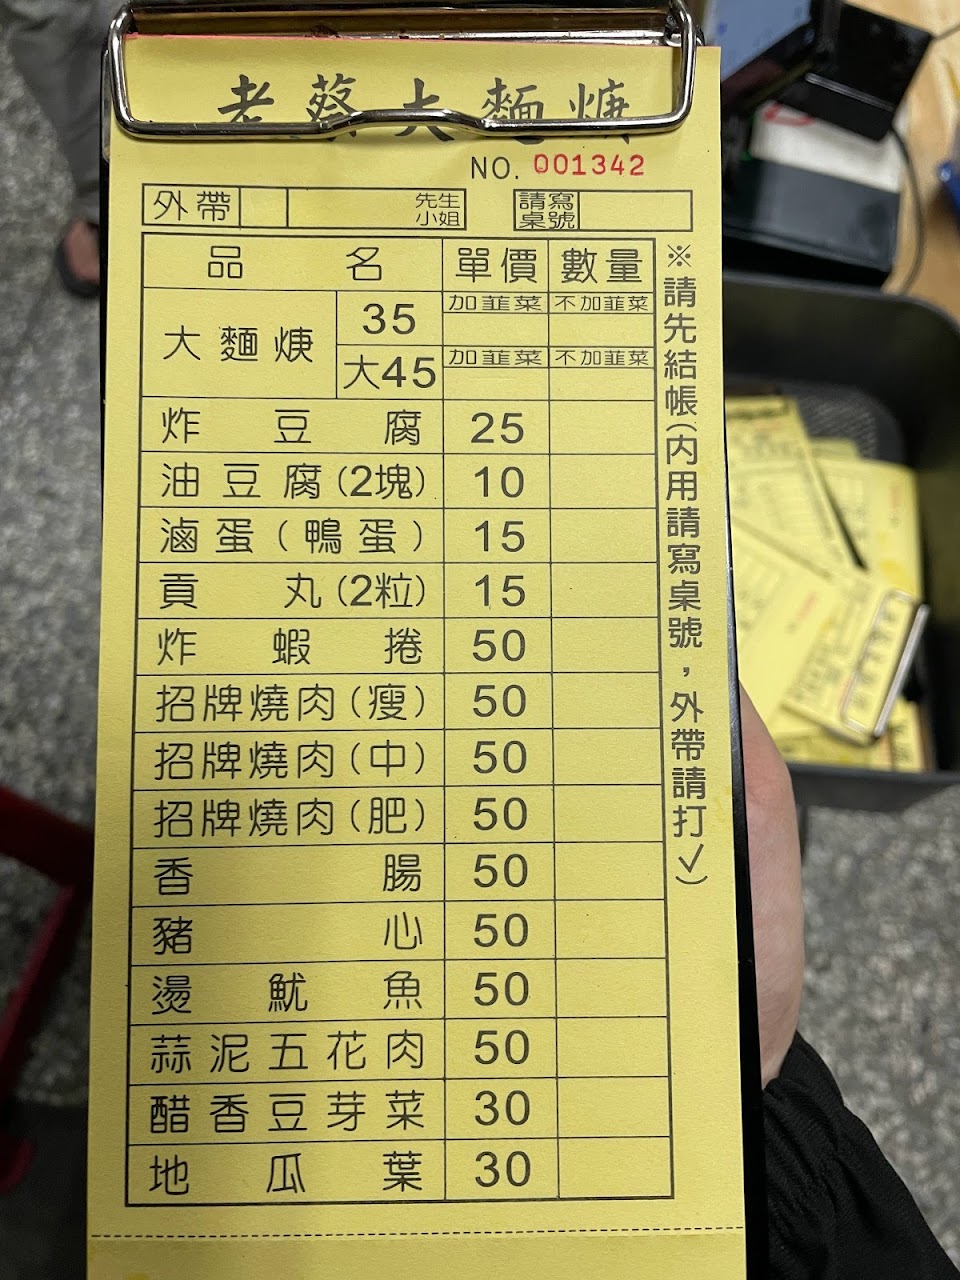 老蔡大麵焿
NO. 001342
外帶 先生 小姐 請寫桌號
品名 單價 數量
大麵焿 35 加韮菜 不加韮菜
大45 加韮菜 不加韮菜
炸豆腐 25
油豆腐(2塊) 10
滷蛋(鴨蛋) 15
貢丸(2粒) 15
炸蝦捲 50
招牌燒肉(瘦) 50
招牌燒肉(中) 50
招牌燒肉(肥) 50
香腸 50
豬心 50
燙魷魚 50
蒜泥五花肉 50
醋香豆芽菜 30
地瓜葉 30
※請先結帳(內用請寫桌號，外帶請打✓)